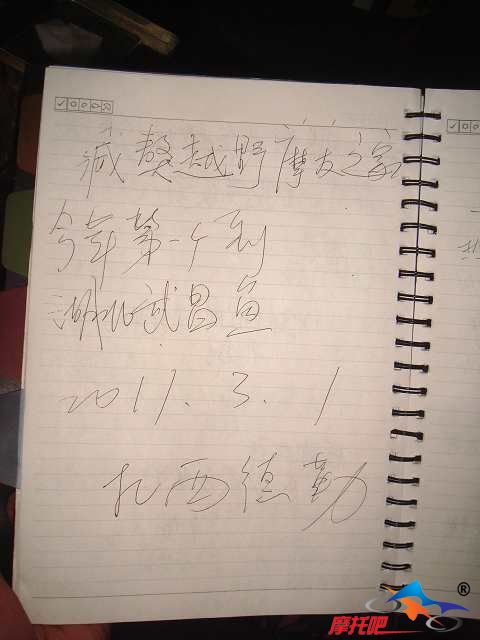 藏獒越野摩友之家
今年第一个到
湖北武昌鱼
2011.3.1
扎西德勒
摩托吧®